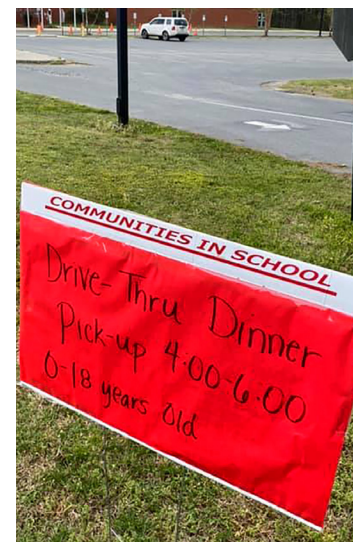 COMMUNITIES IN SCHOOL
Drive-Thru Dinner
Pick-up 4:00-6:00
0-18 years old